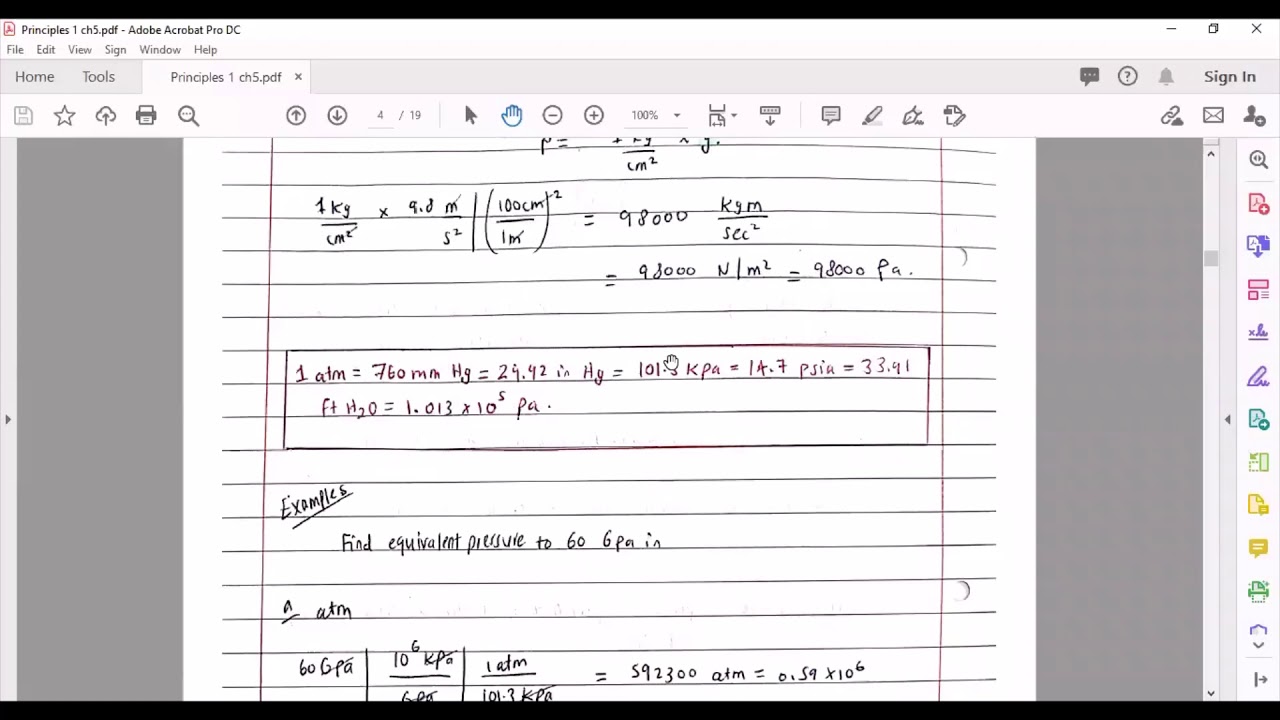 Principles 1 ch5.pdf - Adobe Acrobat Pro DC
File Edit View Sign Window Help
Home Tools Principles 1 ch5.pdf × Sign In
4 / 19 100%
cm²
1 kg/cm² × 9.8 m/s² | (100cm/1m)² = 98000 kgm/sec²
= 98000 N/m² = 98000 Pa.
1 atm = 760 mm Hg = 29.92 in Hg = 101.3 KPa = 14.7 psia = 33.91
ft H2O = 1.013 × 10⁵ Pa.
Examples
Find equivalent pressure to 60 Gpa in
a atm
60 GPa | 10⁶ KPa/GPa | 1 atm/101.3 KPa = 592300 atm = 0.59 × 10⁶